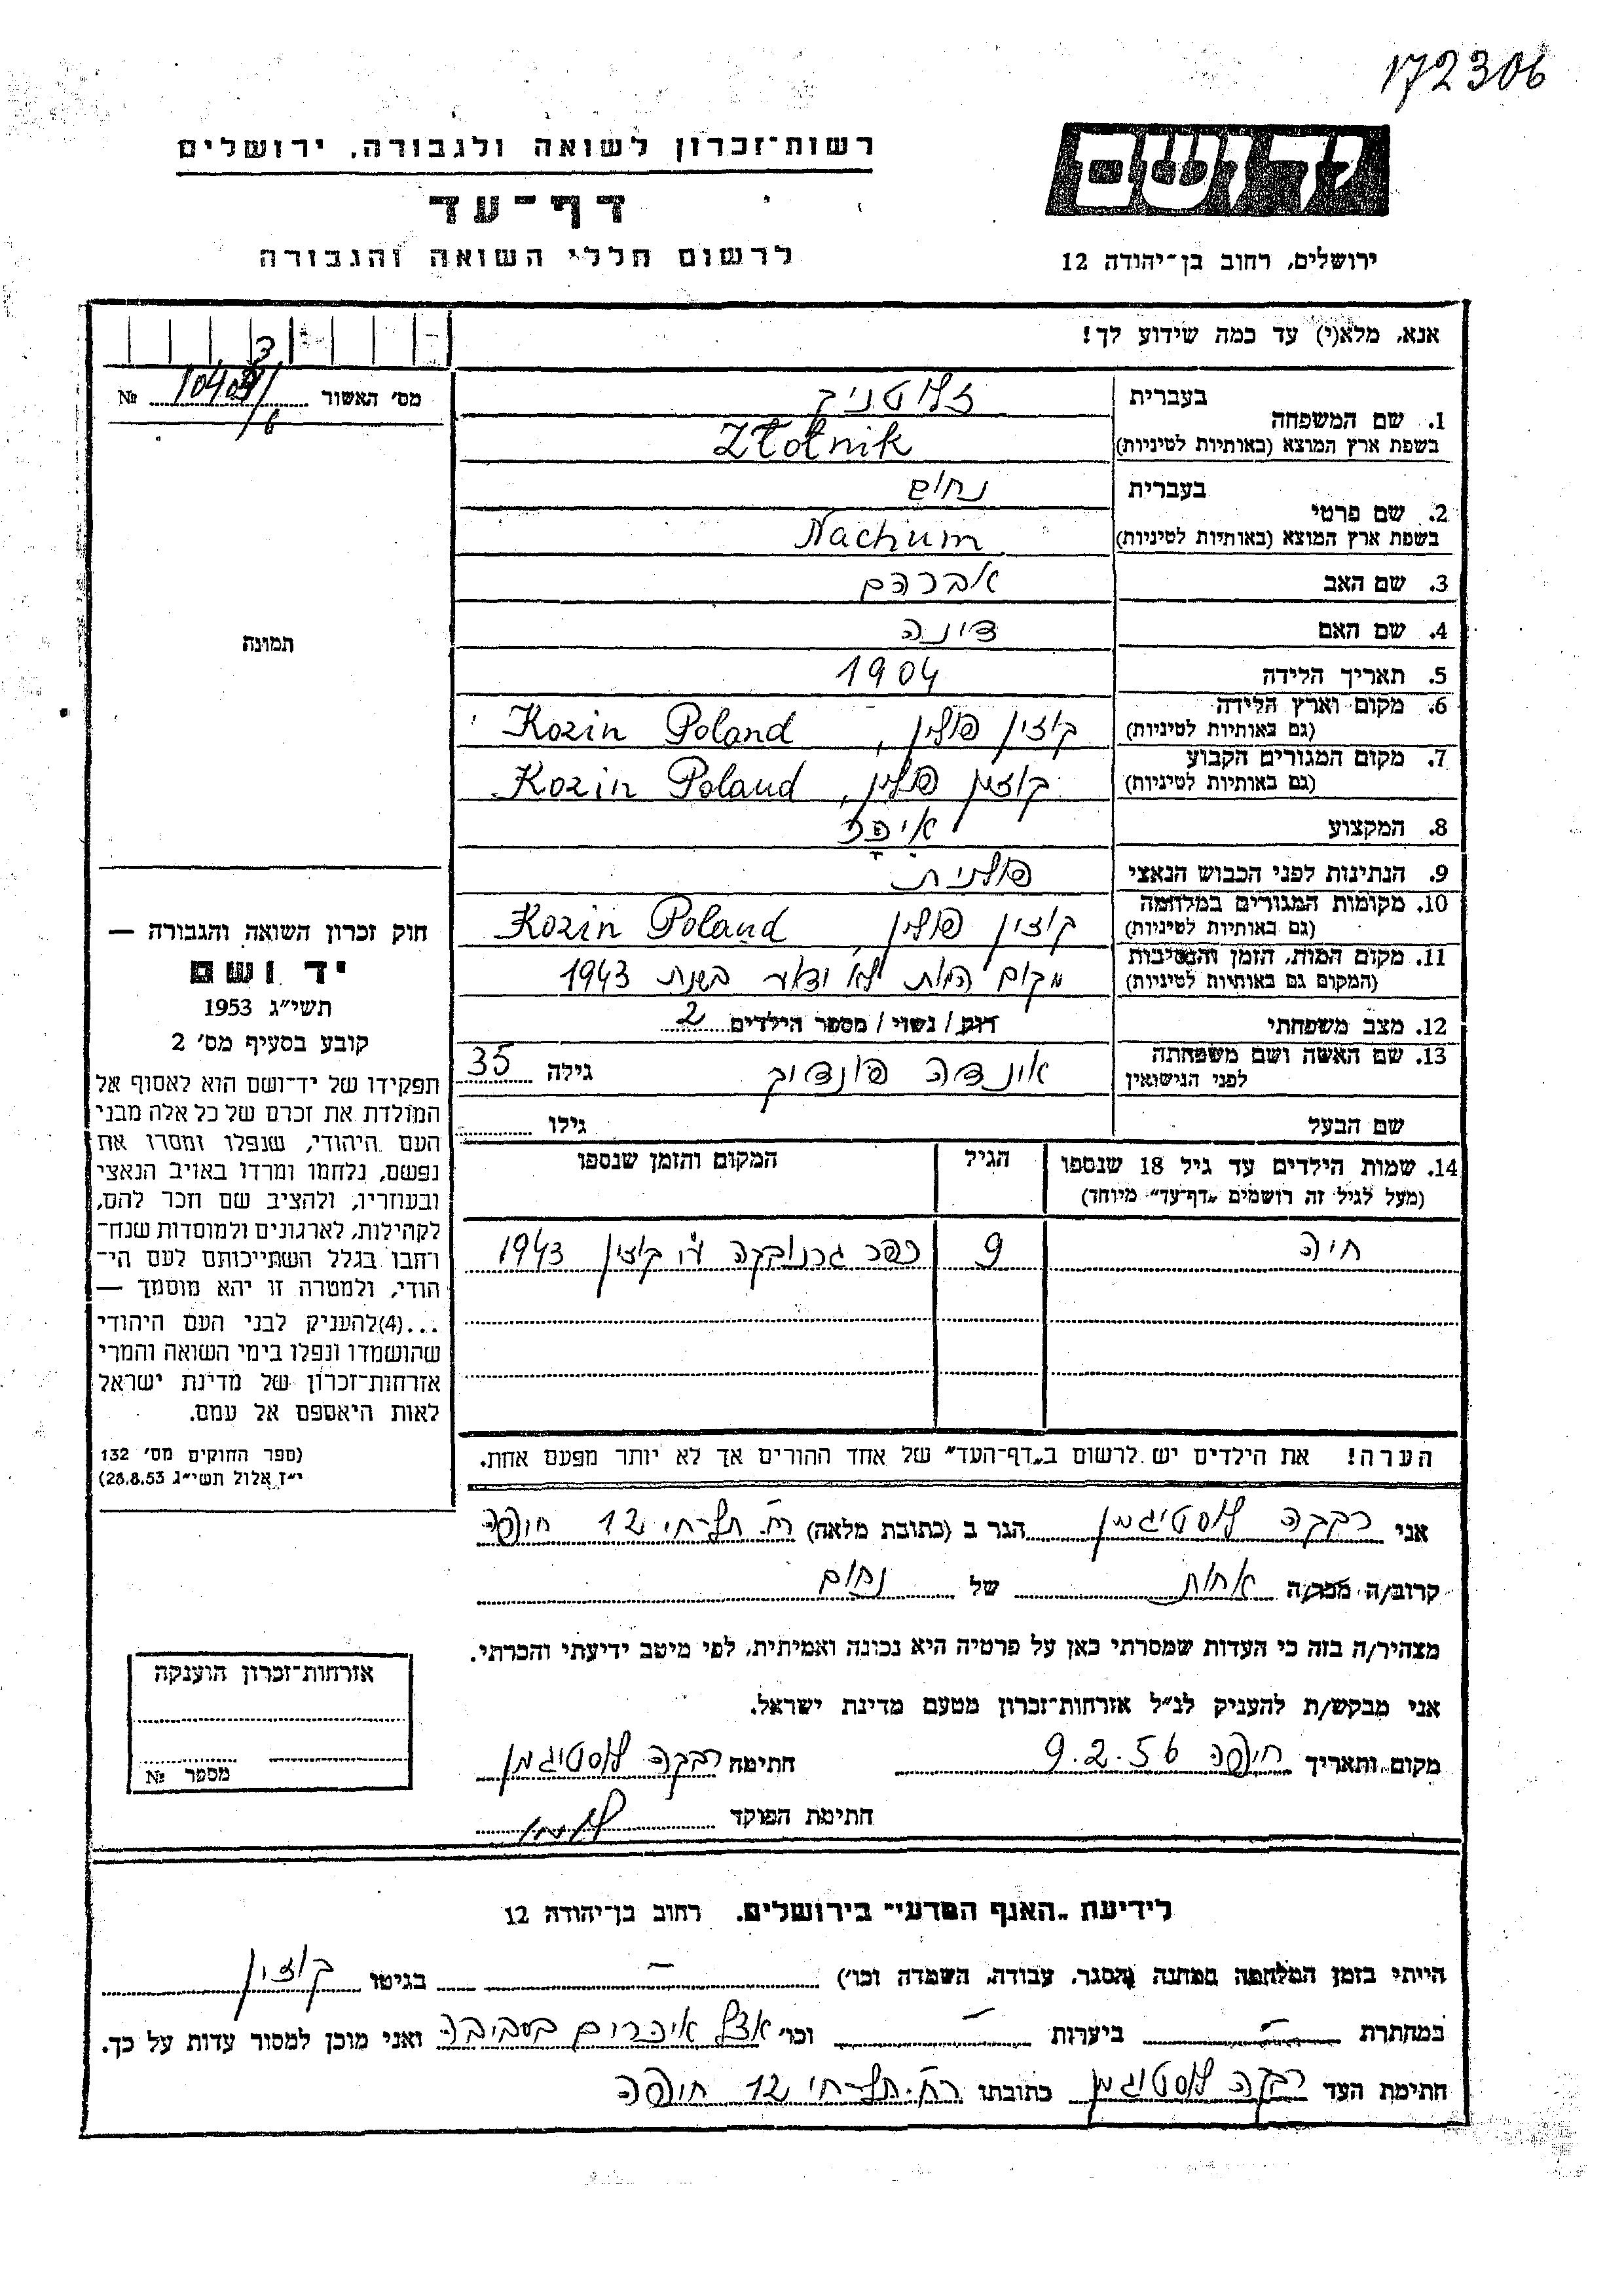 172306
יד ושם
רשות־זכרון לשואה ולגבורה, ירושלים
דף־עד
לרשום חללי השואה והגבורה
ירושלים, רחוב בן־יהודה 12
אנא, מלא(י) עד כמה שידוע לך!
מס' האשור № 
1. שם המשפחה
בעברית זלוטניק
בשפת ארץ המוצא (באותיות לטיניות) Złotnik
2. שם פרטי
בעברית נחום
בשפת ארץ המוצא (באותיות לטיניות) Nachum
3. שם האב אברהם
4. שם האם דינה
5. תאריך הלידה 1904
6. מקום וארץ הלידה
(גם באותיות לטיניות) קוזין פולין, Kozin Poland
7. מקום המגורים הקבוע
(גם באותיות לטיניות) קוזין פולין, Kozin Poland
8. המקצוע
9. הנתינות לפני הכבוש הנאצי פולנית
10. מקומות המגורים במלחמה
(גם באותיות לטיניות) קוזין פולין, Kozin Poland
11. מקום המות, הזמן והנסיבות
(המקום גם באותיות לטיניות) מקום המות לא ודאי בשנת 1943
12. מצב משפחתי רוק / נשוי / מספר הילדים 2
13. שם האשה ושם משפחתה
לפני הנישואין פונדיק גילה 35
שם הבעל גילו
14. שמות הילדים עד גיל 18 שנספו
(מעל לגיל זה רושמים „דף־עד" מיוחד)
הגיל
המקום והזמן שנספו
חיה 9 כפר גרנובקה ע"י קוזין 1943
הערה! את הילדים יש לרשום ב„דף־העד" של אחד ההורים אך לא יותר מפעם אחת.
תמונה
חוק זכרון השואה והגבורה —
יד ושם
תשי"ג 1953
קובע בסעיף מס' 2
תפקידו של יד־ושם הוא לאסוף אל
המולדת את זכרם של כל אלה מבני
העם היהודי, שנפלו ומסרו את
נפשם, נלחמו ומרדו באויב הנאצי
ובעוזריו, ולהציב שם וזכר להם,
לקהילות, לארגונים ולמוסדות שנח־
רחבו בגלל השתייכותם לעם הי־
הודי, ולמטרה זו יהא מוסמך —
...(4)להעניק לבני העם היהודי
שהושמדו ונפלו בימי השואה והמרי
אזרחות־זכרון של מדינת ישראל
לאות היאספם אל עמם.
(ספר החוקים מס' 132
י"ז אלול תשי"ג 28.8.53)
אני רבקה לוסטיגמן הגר ב (כתובת מלאה) רח. תל־חי 12 חיפה
קרוב/ה מכר/ה אחות של נחום
מצהיר/ה בזה כי העדות שמסרתי כאן על פרטיה היא נכונה ואמיתית, לפי מיטב ידיעתי והכרתי.
אני מבקש/ת להעניק לנ"ל אזרחות־זכרון מטעם מדינת ישראל.
מקום ותאריך חיפה 9.2.56 חתימה רבקה לוסטיגמן
חתימת הפוקד
אזרחות־זכרון הוענקה
מספר №
לידיעת „האגף המדעי" בירושלים, רחוב בן־יהודה 12
הייתי בזמן המלחמה במחנה (הסגר, עבודה, השמדה וכו') — בגיטו קוזין
במחתרת — ביערות — וכו' אצל איכרים בסביבה ואני מוכן למסור עדות על כך.
חתימת העד רבקה לוסטיגמן כתובתו רח. תל־חי 12 חיפה